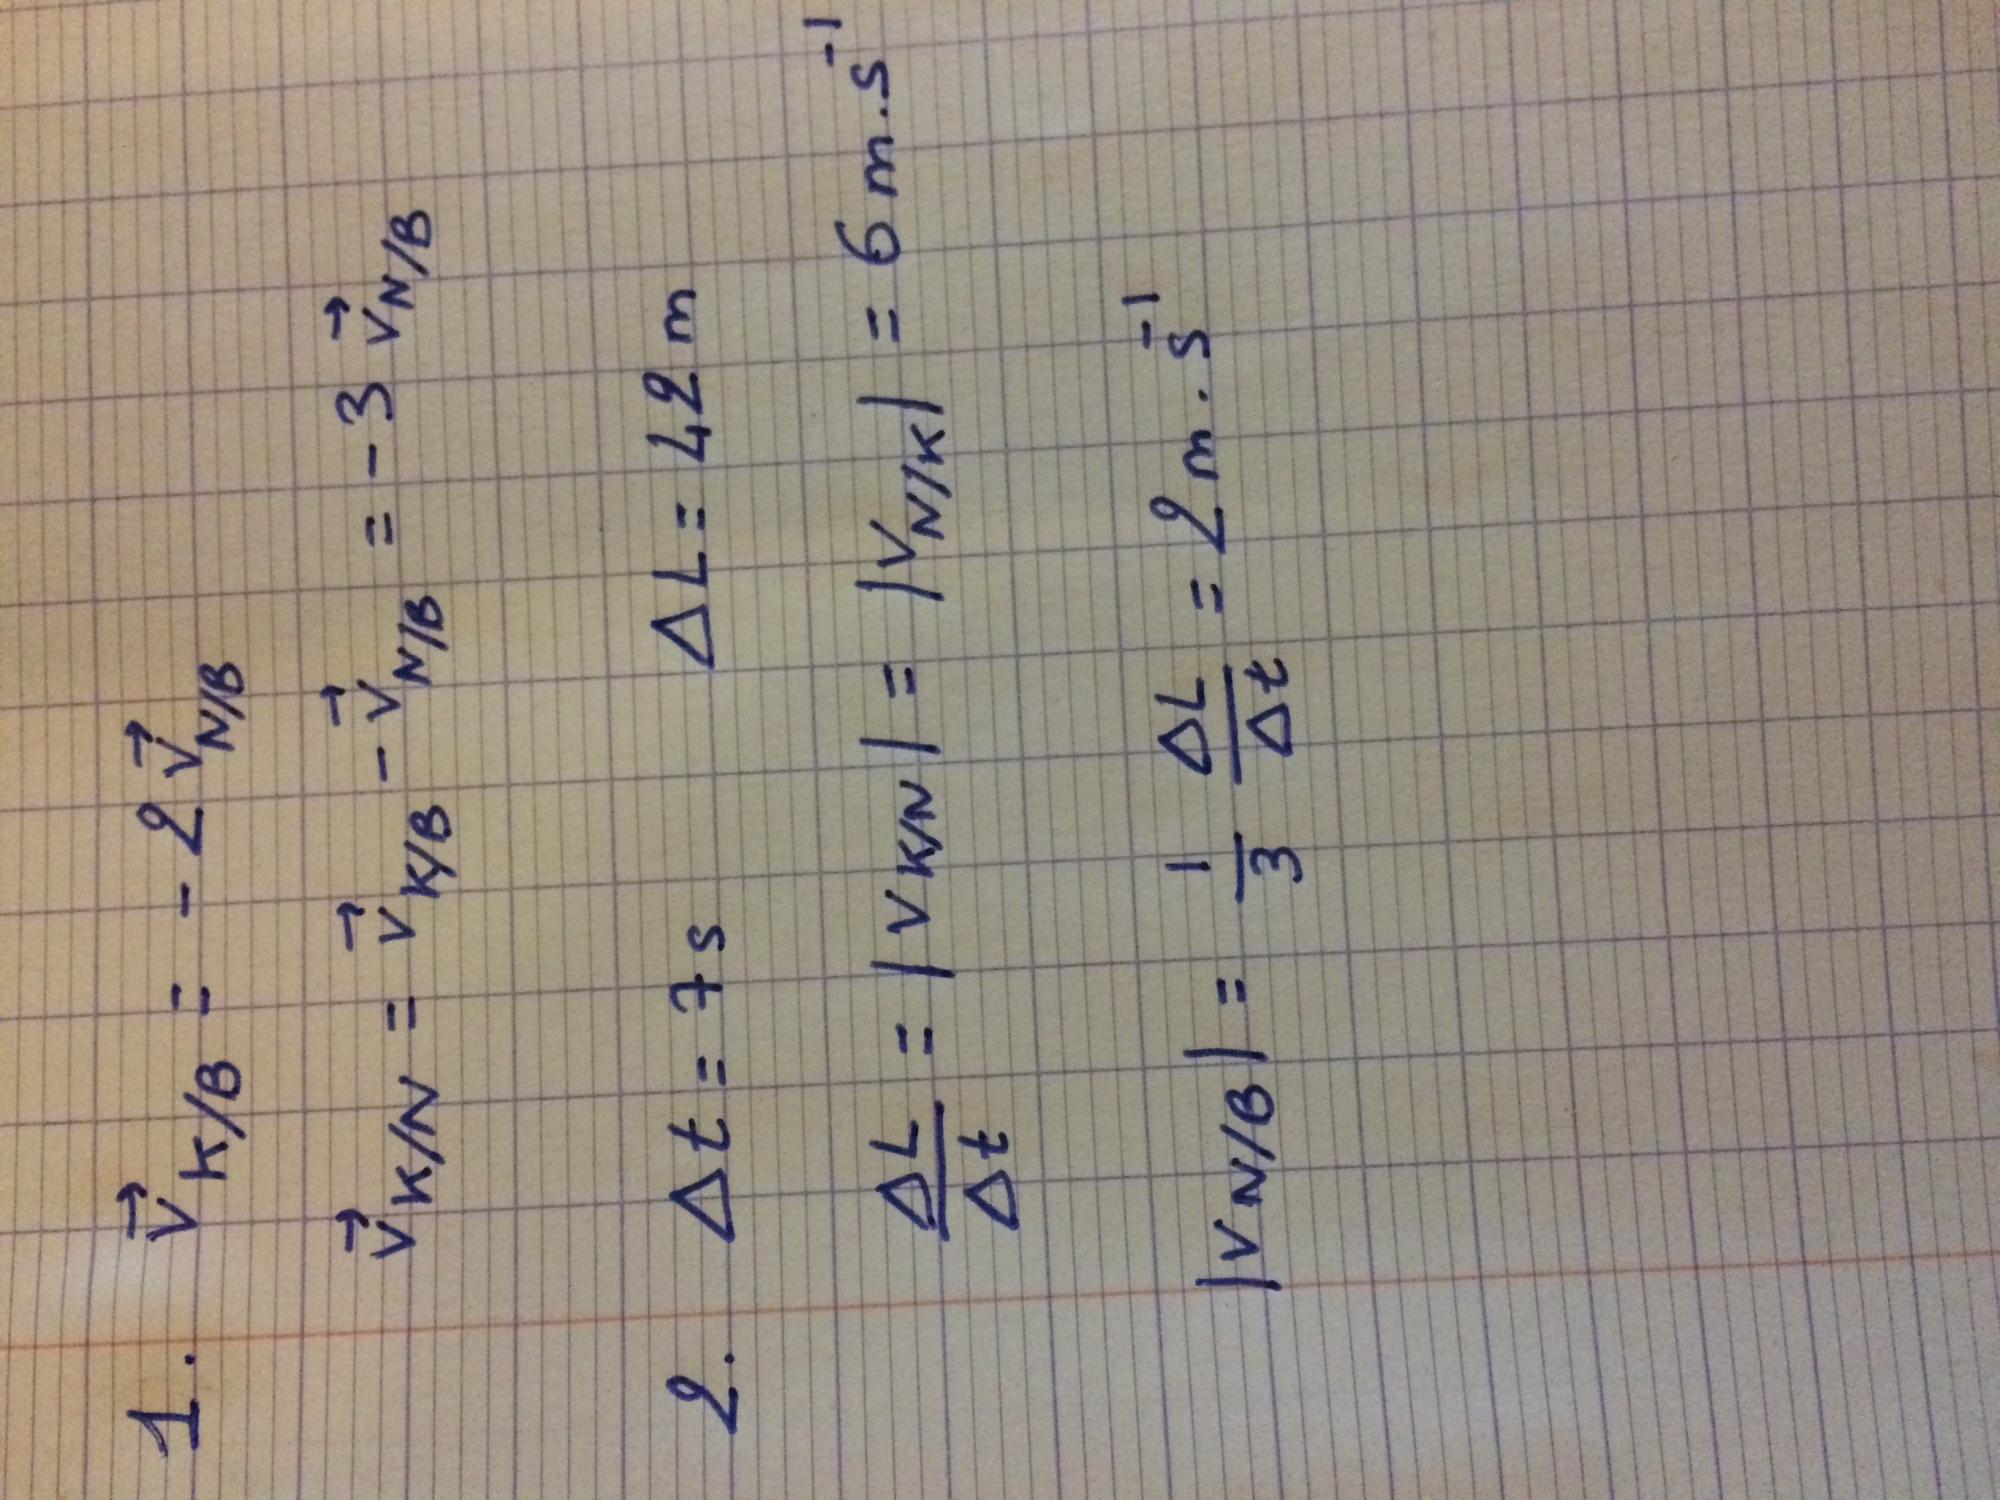 1. v⃗ K/B = - 2 v⃗ N/B
v⃗ K/N = v⃗ K/B - v⃗ N/B = - 3 v⃗ N/B
2. Δt = 7 s ΔL = 42 m
ΔL/Δt = |v K/N| = |v N/K| = 6 m.s⁻¹
|v N/B| = 1/3 ΔL/Δt = 2 m.s⁻¹